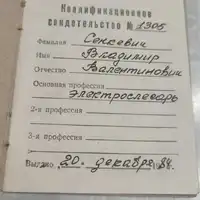 Квалификационное
свидетельство № 1305
Фамилия Сенкевич
Имя Владимир
Отчество Валентинович
Основная профессия
электрослесарь
2-я профессия
3-я профессия
Выдано „20„ декабря 84.